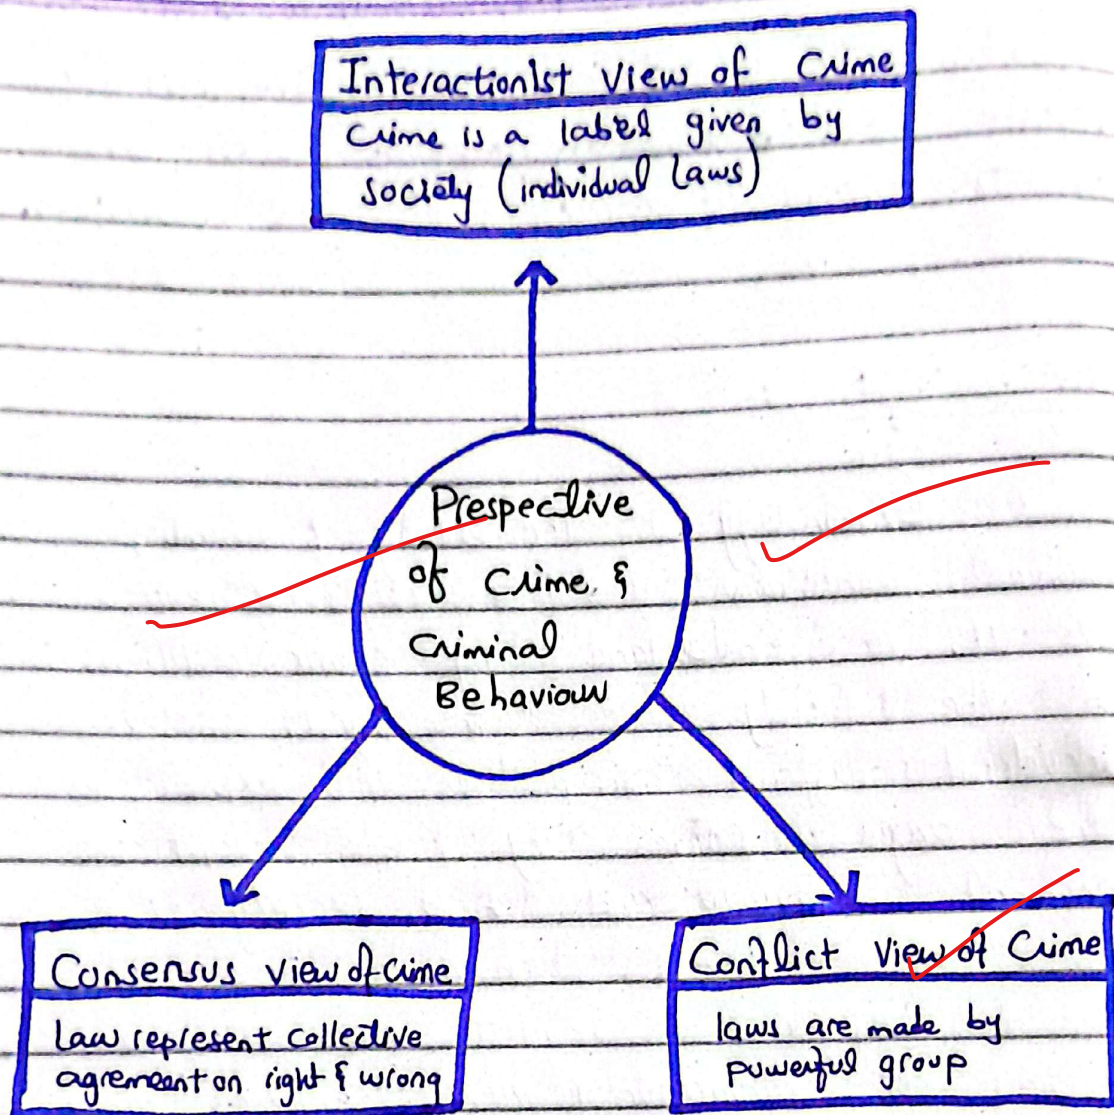 Interactionist View of Crime
Crime is a label given by
society (individual laws)
Prespective
of Crime &
Criminal
Behaviour
Consensus view of crime
Law represent collective
agreement on right & wrong
Conflict View of Crime
laws are made by
powerful group